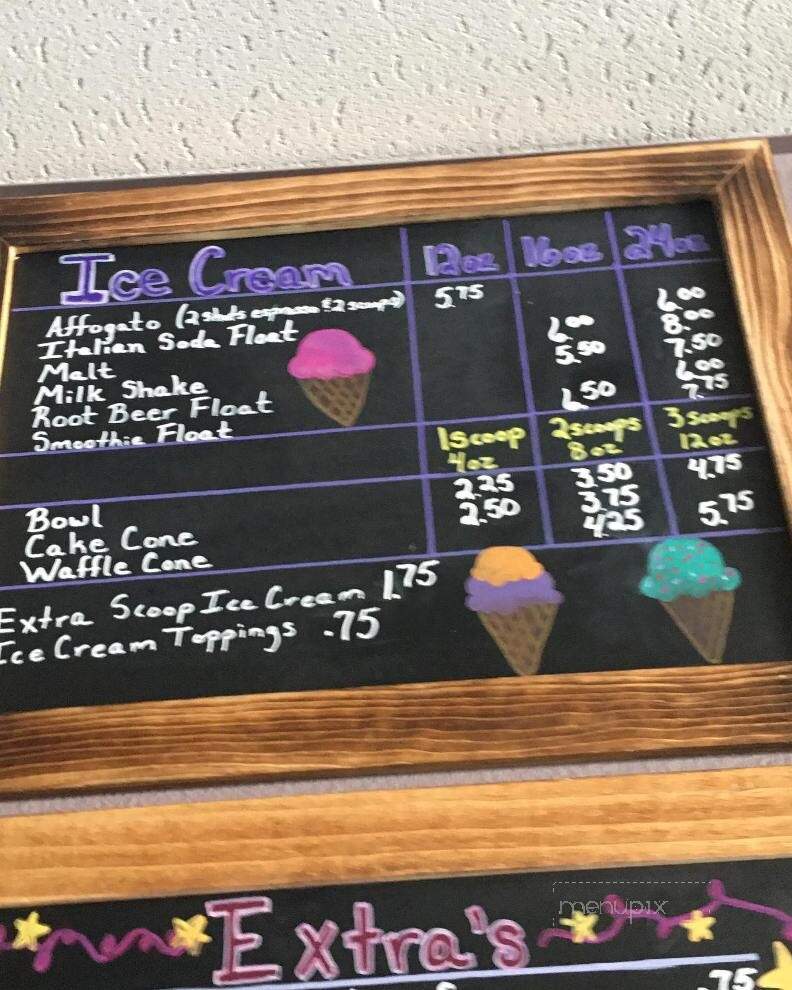 Ice Cream 12oz 16oz 24oz
Affogato (2 shots espresso & 2 scoops) 5.75
Italian Soda Float 6.00
Malt 6.00 8.00
Milk Shake 5.50 7.50
Root Beer Float 6.00
Smoothie Float 6.50 7.75
1 scoop 2 scoops 3 scoops
4oz 8oz 12oz
Bowl 2.25 3.50 4.75
Cake Cone 2.50 3.75
Waffle Cone 4.25 5.75
Extra Scoop Ice Cream 1.75
Ice Cream Toppings .75
Extra's
menupix
.75